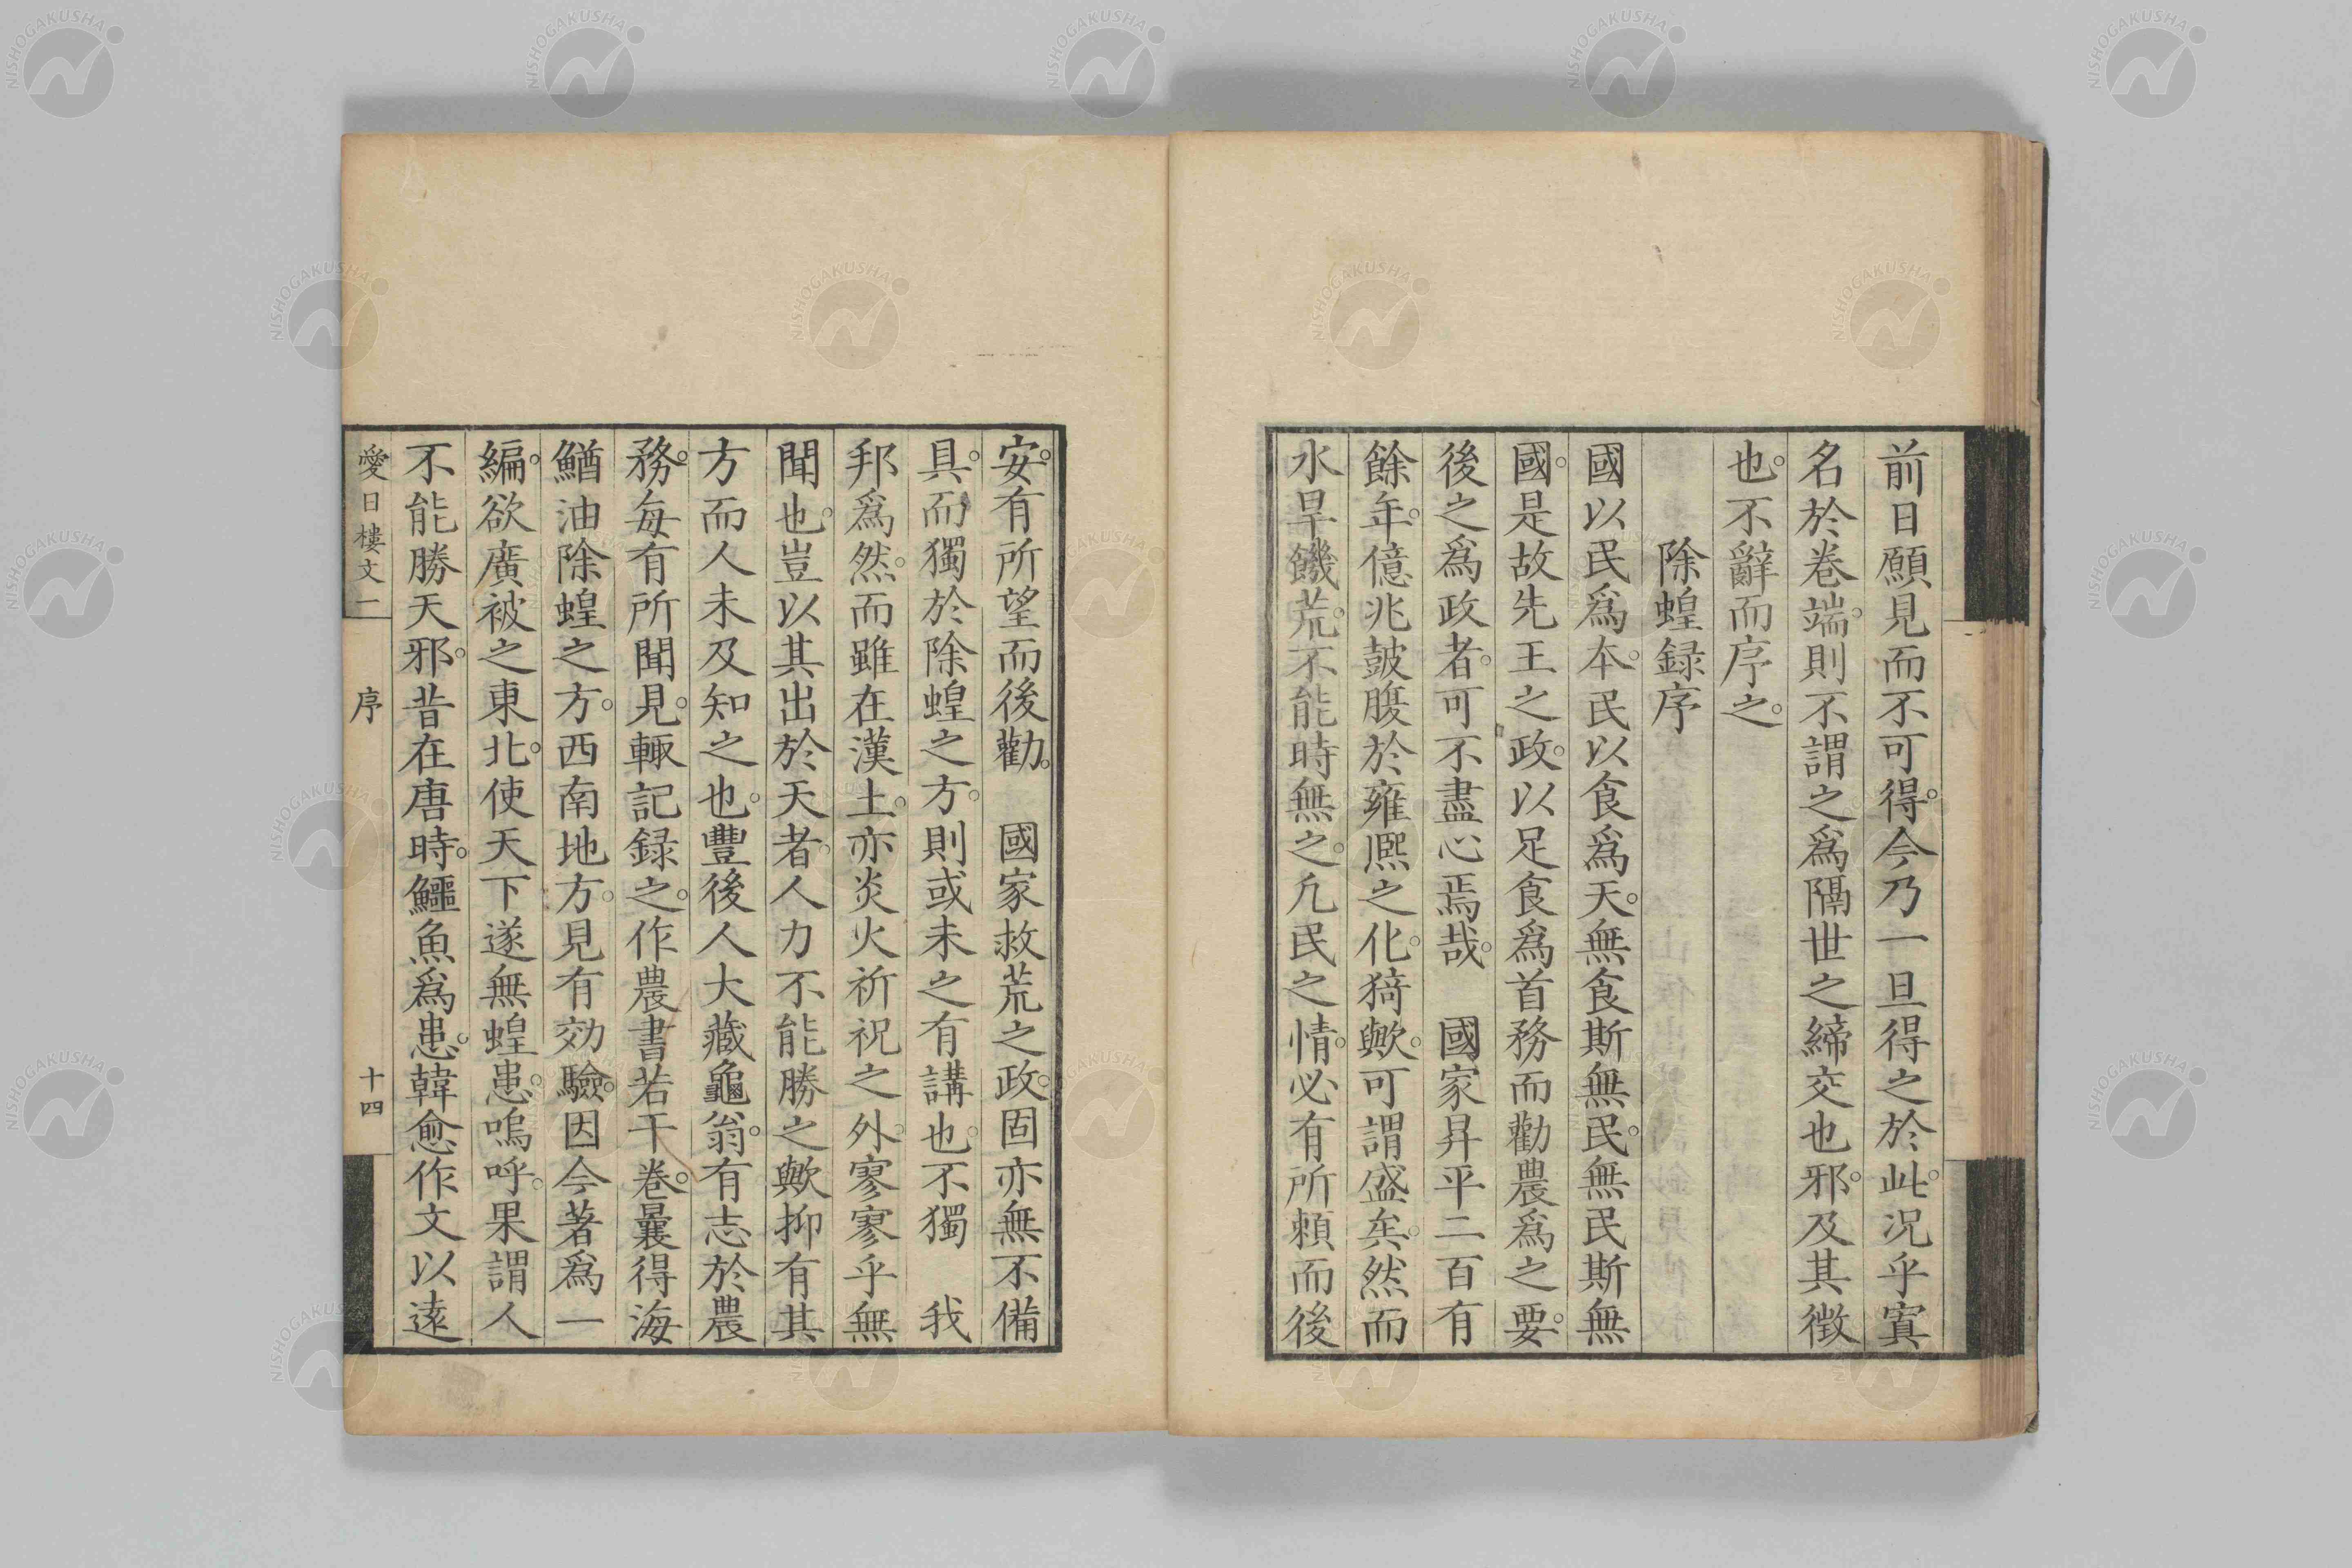 前日願見而不可得。今乃一旦得之於此。况乎寘
名於卷端。則不謂之爲隔世之締交也邪。及其徴
也。不辭而序之。
除蝗録序
國以民爲本。民以食爲天。無食斯無民。無民斯無
國。是故先王之政。以足食爲首務而勸農爲之要。
後之爲政者。可不盡心焉哉。　國家昇平二百有
餘年。億兆鼓腹於雍熈之化。猗歟。可謂盛矣。然而
水旱饑荒。不能時無之。凢民之情。必有所頼而後
安。有所望而後勸。　國家救荒之政。固亦無不備
具。而獨於除蝗之方。則或未之有講也。不獨　我
邦爲然。而雖在漢土。亦炎火祈祝之外。寥寥乎無
聞也。豈以其出於天者。人力不能勝之歟抑有其
方而人未及知之也。豐後人大藏龜翁。有志於農
務。每有所聞見。輙記録之。作農書若干卷。曩得海
鰌油除蝗之方。西南地方。見有効驗。因今著爲一
編。欲廣被之東北。使天下遂無蝗患。嗚呼。果謂人
不能勝天邪。昔在唐時。鱷魚爲患。韓愈作文以遠
愛日樓文二　序　十四
NISHOGAKUSHA